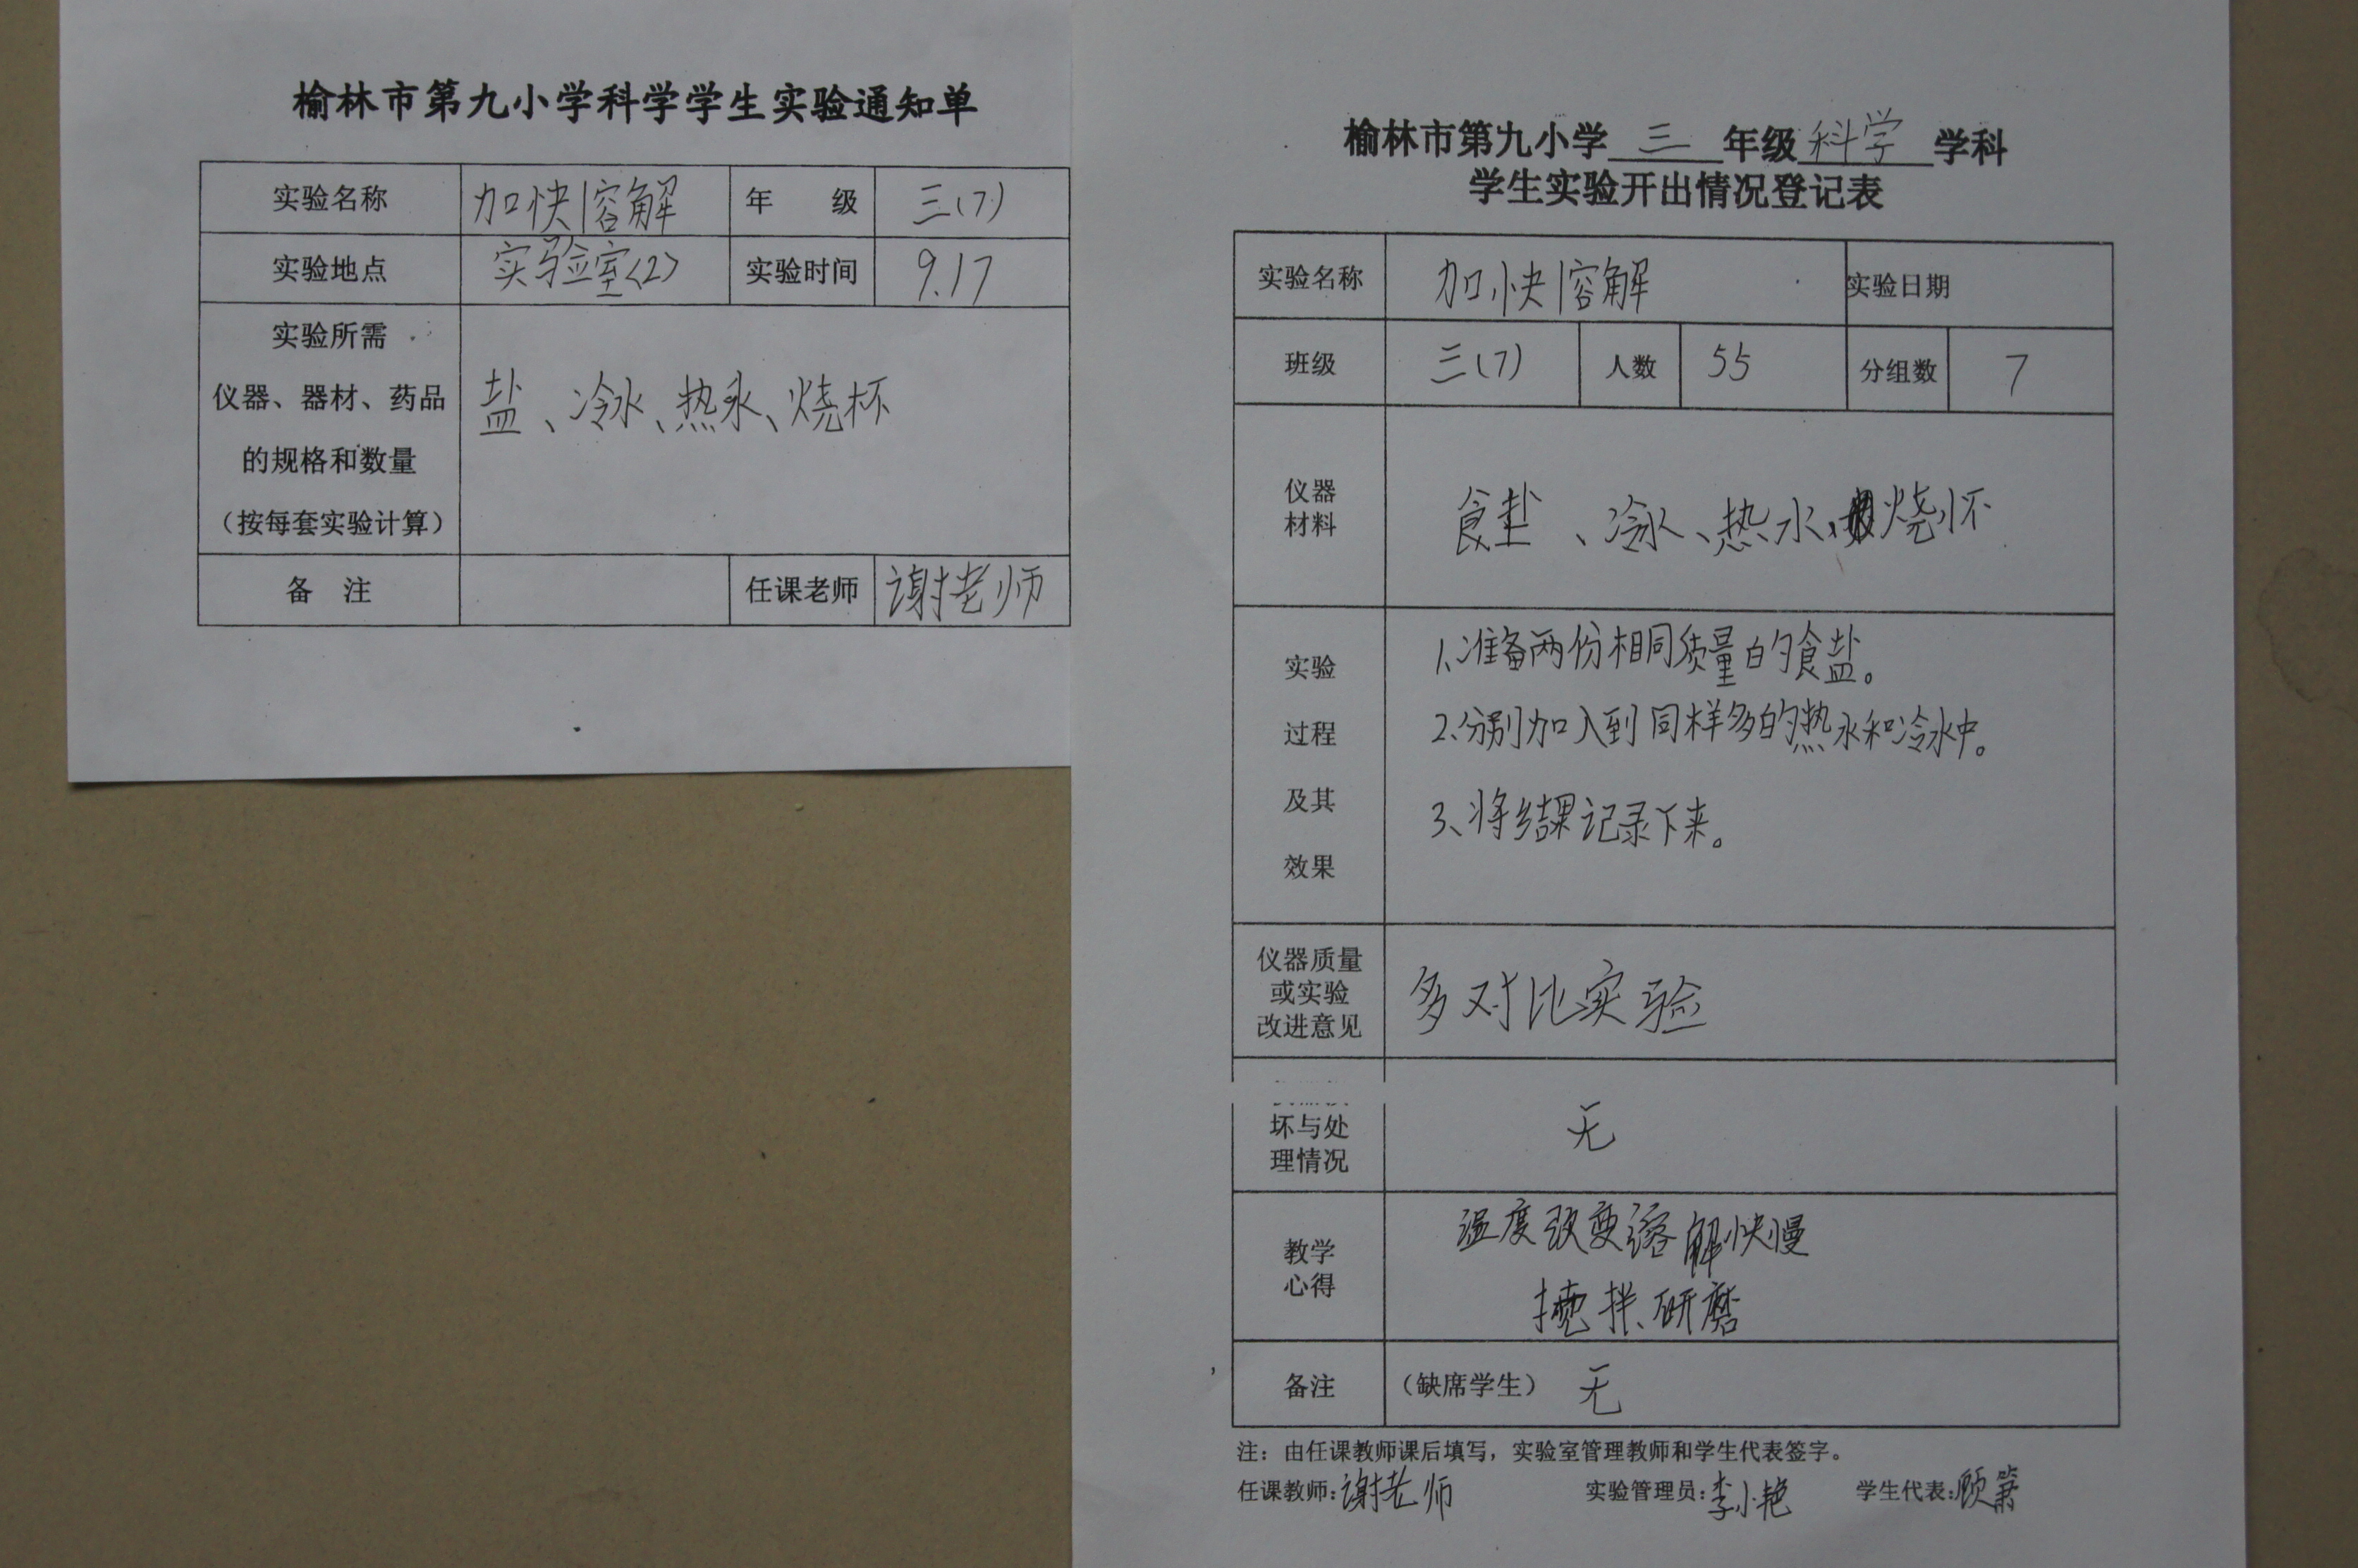 榆林市第九小学科学学生实验通知单
实验名称 加快溶解 年 级 三(7)
实验地点 实验室<2> 实验时间 9.17
实验所需
仪器、器材、药品
的规格和数量
（按每套实验计算）
盐、冷水、热水、烧杯
备 注 任课老师 谢老师
榆林市第九小学 三 年级 科学 学科
学生实验开出情况登记表
实验名称 加快溶解 实验日期
班级 三(7) 人数 55 分组数 7
仪器
材料
食盐、冷水、热水、烧杯
实验
过程
及其
效果
1、准备两份相同质量的食盐。
2、分别加入到同样多的热水和冷水中。
3、将结果记录下来。
仪器质量
或实验
改进意见
多对比实验
坏与处
理情况
无
教学
心得
温度改变溶解快慢
搅拌、研磨
备注 （缺席学生） 无
注：由任课教师课后填写，实验室管理教师和学生代表签字。
任课教师：谢老师 实验管理员：李小艳 学生代表：顾